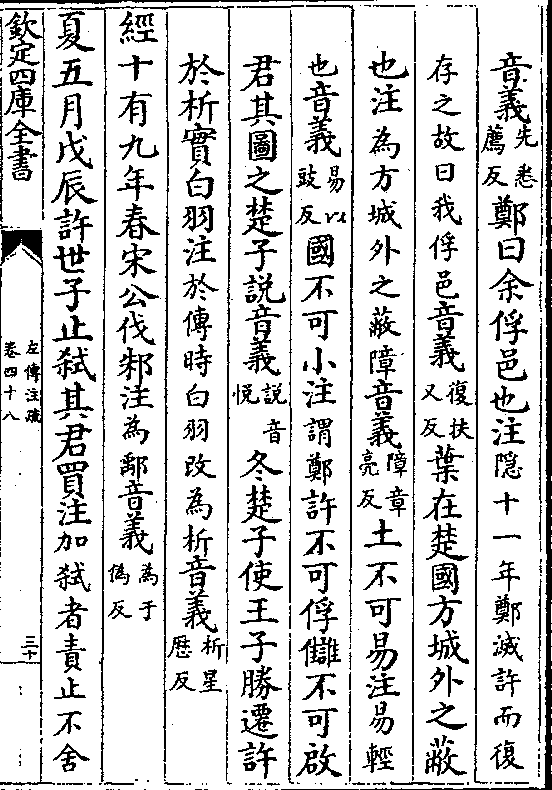 音義先悉薦反鄭曰余俘邑也注隠十一年鄭滅許而復
存之故曰我俘邑音義復扶又反葉在楚國方城外之蔽
也注為方城外之蔽障音義障章亮反土不可易注易輕
也音義易以豉反國不可小注謂鄭許不可俘讎不可啟
君其圖之楚子説音義説音悦冬楚子使王子勝遷許
於析實白羽注於傳時白羽改為析音義析星歴反
經十有九年春宋公伐邾注為鄅音義為于偽反
夏五月戊辰許世子止弑其君買注加弑者責止不舍
欽定四庫全書
左傳注疏
卷四十八
三十